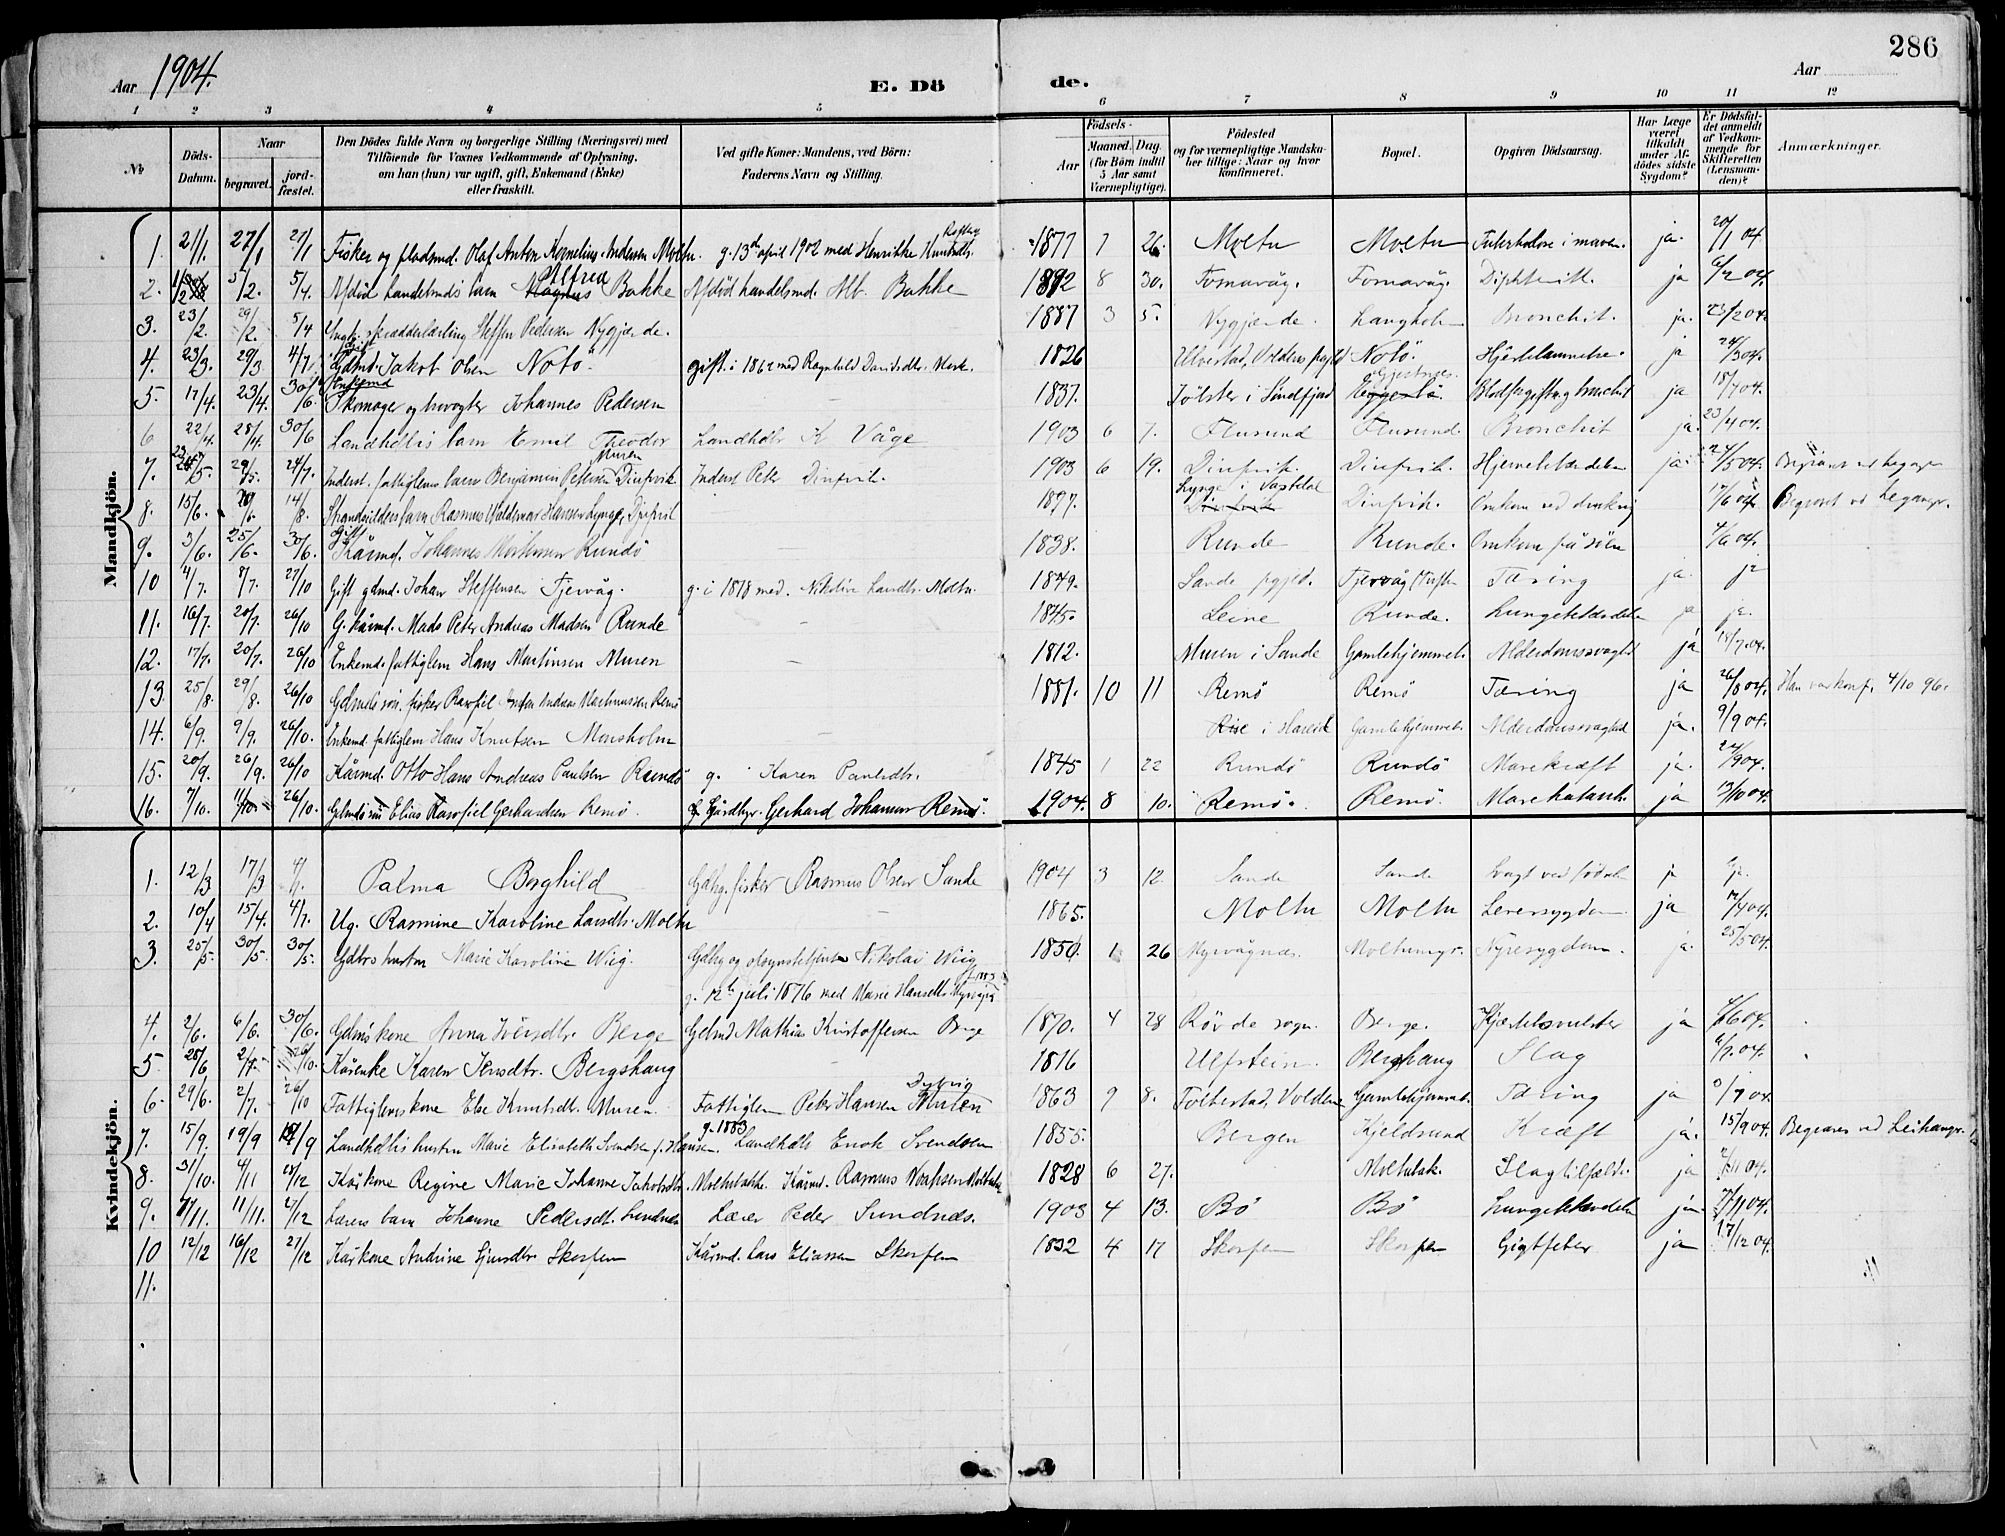 286
Aar 1904.
E. Dö de.
Aar
1 2 3 4 5 6 7 8 9 10 11 12
No
Döds-Datum.
Naar
begravet.
jord-fæstet.
Den Dödes fulde Navn og borgerlige Stilling (Næringsvei) med Tilföiende for Voxnes Vedkommende af Oplysning, om han (hun) var ugift, gift, Enkemand (Enke) eller fraskilt.
Ved gifte Koner: Mandens, ved Börn: Faderens Navn og Stilling.
Födsels-
Aar
Maaned. Dag. (for Börn indtil 5 Aar samt Værnepligtige).
Födested og for værnepligtige Mandskaber tillige: Naar og hvor konfirmeret.
Bopæl.
Opgiven Dödsaarsag.
Har Læge været tilkaldt under Afdödes sidste Sygdom?
Er Dödsfaldet anmeldt af Vedkommende for Skifteretten (Lensmanden)?
Anmærkninger.
Mandkjön.
1. 21/1. 27/1 27/1 Fisker og pladsmd. Olaf Anton Kornelius Andersen Moltu. g. 13de april 1902 med Henrikke Knutsdtr. 1877 7 26. Moltu Moltu i maven. ja. 20/1 04
2. 5/2. 5/4. Afdöd handelsmds barn Alfred Bakke Afdöd handelsmd. Alb. Bakke 1892 8 30. Fosnavåg. Fosnavåg. Diphterit. ja 6/2 04.
3. 23/2. 29/2. 5/4 skrædderlærling Steffen Pedersen Nygjærde. 1887 3 5. Nygjærde. Langholm Bronchit. ja. 23/2 04.
4. 23/3. 29/3 4/7 Gdmd. Jakob Olsen Notö gift i 1862 med Ragnhild Davidsdtr. Mork. 1826 Ulvestad, Voldens pgjld Notö. Hjertelammelse. ja 24/3 04.
5. 17/4. 23/4. 30/6. Enkemd Skomager og Johannes Pedersen 1837. Jölster i Söndfjord Gjerdsnes. Blodforgiftn. og bronchit ja 18/4 04.
6 22/4. 28/4. 30/6 Landhdlrs barn Emil Theodor Landhdlr K Våge 1903 6 7. Flusund Flusund. Bronchit ja. 23/4 04.
7. 29/5. 24/7. Inderst. fattiglems barn Benjamin Petersen Muren Inderst Peter 1903 6 19. Hjernebetændelse. ja. 24/5 04.
8. 15/6. 14/8. Rasmus Valdemar Hansen 1897. Omkom ved drukning 17/6 04.
9. 3/6. 25/6. 30/6. Gift Kårmd. Johannes Mortensen Rundö 1838. Runde Runde. Omkom på söen 4/6 04.
10 4/7. 8/7. 27/10 Gift gdmd. Johan Steffensen Tjervåg. g. i 1878 med. Nikoline Larsdtr. Moltu. 1849. Sande pgjed. Tjervåg Tæring ja. ja
11. 16/7. 20/7. 26/10 G. kårmd. Mads Peter Andreas Madsen Runde 1845. Leine Runde. Lungebetændelse ja ja.
12. 17/7. 20/7. 26/10 Enkemd. fattiglem Hans Martinsen Muren 1812. Muren i Sande Gamlehjemmet. Alderdomssvaghd ja 18/7. 04.
13. 25/8. 29/8. 26/10 Gdmds sön. fisker Rasmus Andreas Martinussen Remö 1881. 10 11 Remö Remö Tæring ja 26/8 04. Han var konf. 4/10 96.
14. 6/9. 9/9. 26/10. Enkemd. fattiglem Hans Knutsen Monsholm Rise i Hareid Gamlehjemmet. Alderdomssvaghed ja. 9/9 04.
15. 20/9. 26/9. 26/10 Kårmd. Otto Hans Andreas Paulsen Rundö g. Karen Paulsdtr. 1845 1 22 Rundö Rundö Mavekræft ja. 22/9 04.
16. 7/10. 11/10. 26/10. Gdmds sön Elias Gerhardsen Remö. Gårdbr. Gerhard Johansen Remö. 1904. 8 10. Remö. Remö. Mavekatarrh. ja 13/10 04.
Kvindekjön.
1. 12/3 17/3 4/7. Palma Borghild Gdbg. fisker Rasmus Olsen Sande 1904 3 12. Sande Sande Svagt ved födsel ja ja.
2. 10/4 15/4. 4/7. Ug. Rasmine Karoline Larsdtr. Moltu 1865. Moltu Moltu Leversygdom. ja 04.
3. 25/5. 30/5. 30/5. Gdbrs hustru Marie Karoline Wiig. Gdbg og opsynsbetjent Nikolai Wiig 1850. 1 26 Myrvågnæs. Moltumyr. Nyresygdom. ja. 25/5 04.
g. 12te juli 1876 med Marie Hansdtr.
4. 2/6. 6/6. 30/6. Gdmds kone Anna Iversdtr. Berge Gdmd Mathias Kristoffersen Berge 1870. 4 28 Rövde sogn. Berge. ja 6 04.
5 28/6 2/7. 26/10. Kårenke Karen Jensdtr. Bergshaug 1816 Ulfstein. Bergshaug Slag 04.
6. 29/6. 2/7. 26/10 Fattiglems kone Else Knutsdtr. Muren. Fattiglem Peter Hansen Muren 1863 9 8. Folkestad, Volden Gamlehjemmet. Tæring ja 7 04
g. 1883
7. 15/9. 19/9 19/9 Landhdlrs hustru Marie Elisabeth Svendsen f. Hansen. Landhdlr Enok Svendsen 1855. Bergen Kjeldsund Kræft ja. 15/9 04. Begraves ved Leikanger.
8. 31/10. 4/11 28/12 Kårkone Regine Marie Johanne Jakobsdtr. Moltubakk. Kårmd. Rasmus Moltubakk 1828 6 27. Moltubak. Slagtilfælde. ja 11 04.
9. 7/11. 11/11. 27/12 Lærers barn Johanne Pedersdt. Sundnæs Lærer Peder Sundnæs. 1903 4 13. Bö Bö Lungebetændelse ja. 11 04.
10 12/12 16/12 27/12 Kårkone Andrine Sjursdtr Skorpen Kårmd. Lars Eliassen Skorpen 1832 4 17 Skorpen Skorpen Gigtfeber ja 17/12 04.
11.